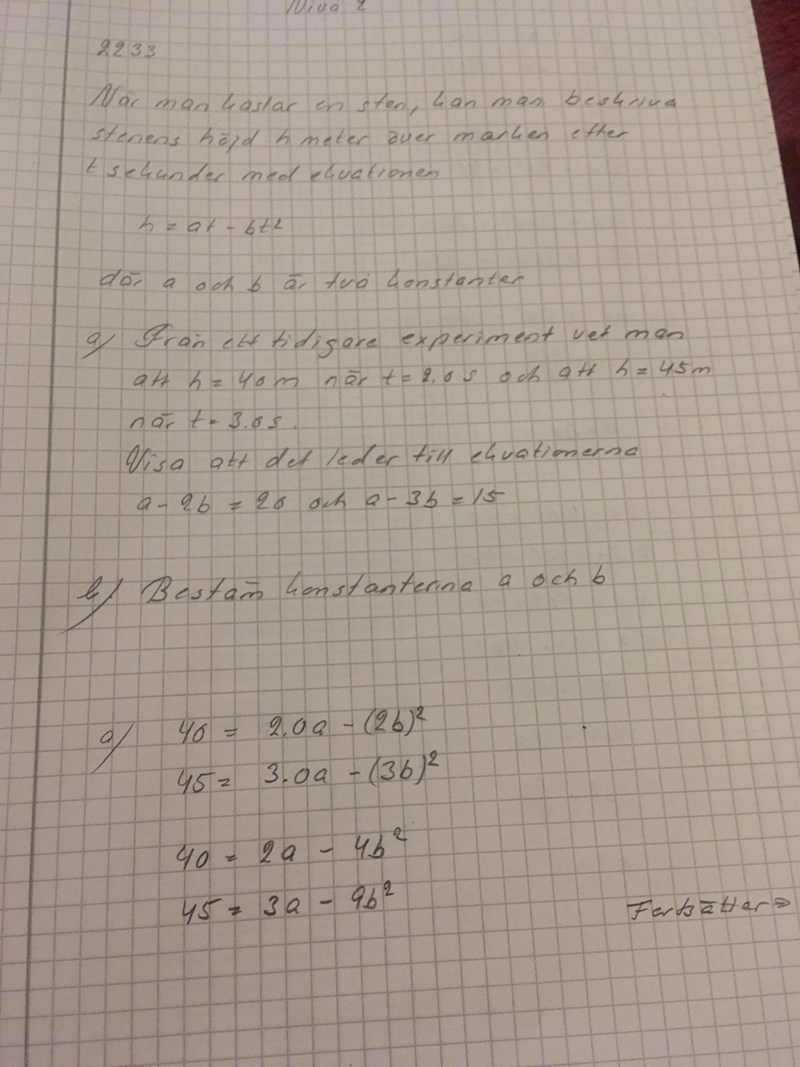 Nivå 2
2233
När man kastar en sten, kan man beskriva
stenens höjd h meter över marken efter
t sekunder med ekvationen
h = at - bt²
där a och b är två konstanter
a) Från ett tidigare experiment vet man
att h = 40 m när t = 2.0 s och att h = 45 m
när t = 3.0 s.
Visa att det leder till ekvationerna
a - 2b = 20 och a - 3b = 15
b) Bestäm konstanterna a och b
a) 40 = 2.0a - (2b)²
45 = 3.0a - (3b)²
40 = 2a - 4b²
45 = 3a - 9b²
Fortsätter ⇒